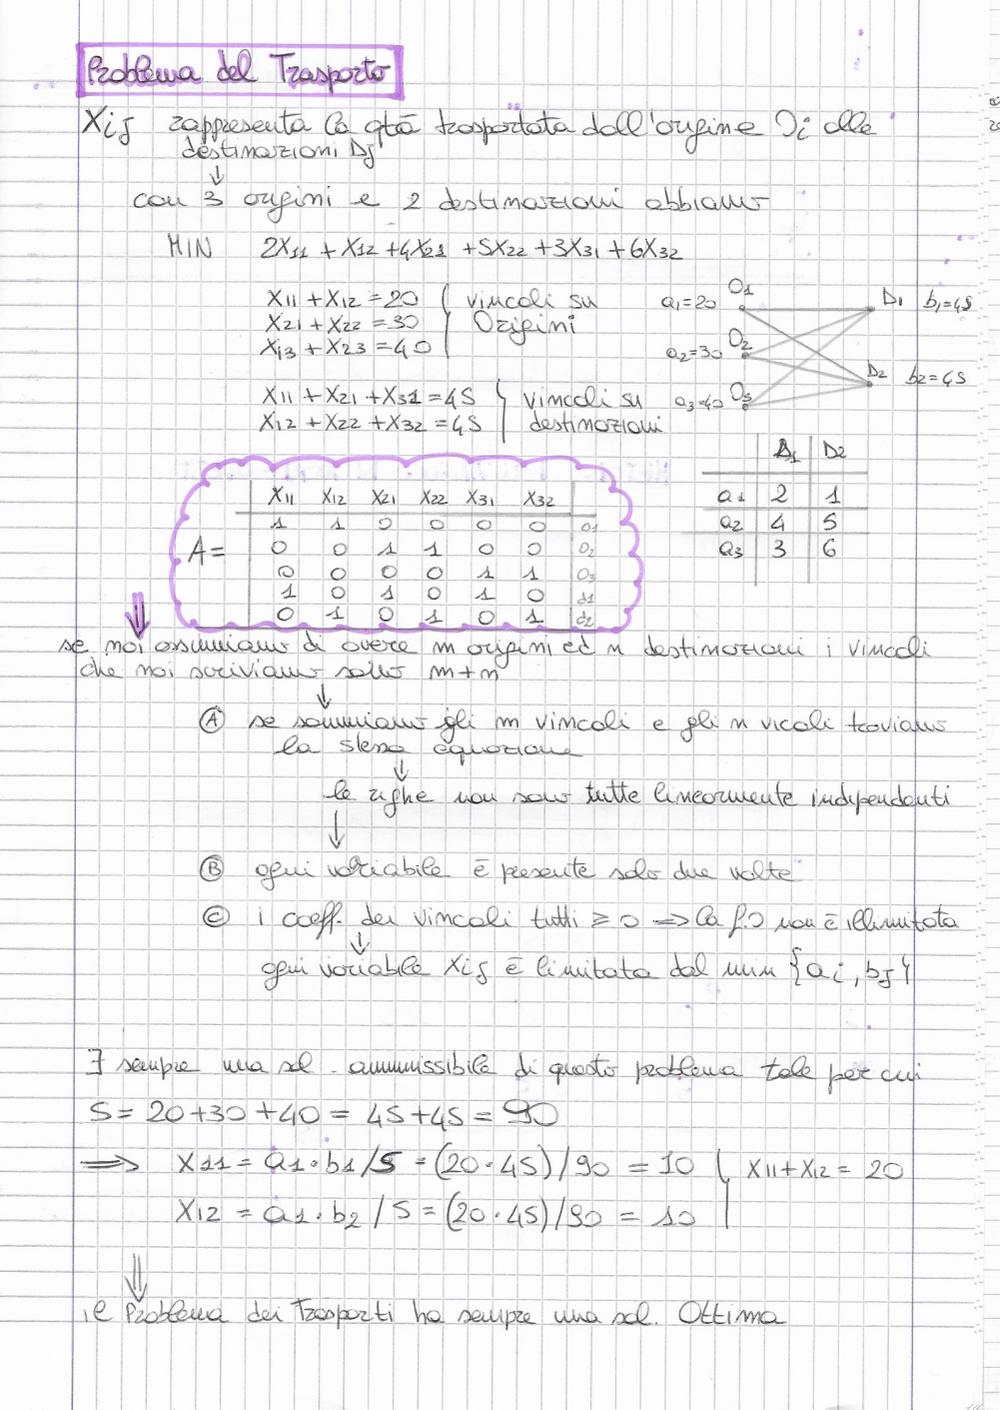 Problema del Trasporto
Xij rappresenta la qtà trasportata dall'origine Oi alle
destinazioni Dj
↓
con 3 origini e 2 destinazioni abbiamo
MIN 2X11 + X12 + 4X21 + 5X22 + 3X31 + 6X32
X11 + X12 = 20
X21 + X22 = 30
X13 + X23 = 40
vincoli su
Origini
X11 + X21 + X31 = 45
X12 + X22 + X32 = 45
vincoli su
destinazioni
a1=20 O1 D1 b1=45
a2=30 O2
D2 b2=45
a3=40 O3
D1 D2
a1 2 1
a2 4 5
a3 3 6
X11 X12 X21 X22 X31 X32
1 1 0 0 0 0 O1
A= 0 0 1 1 0 0 O2
0 0 0 0 1 1 O3
1 0 1 0 1 0 d1
0 1 0 1 0 1 d2
⇓
se noi assumiamo di avere m origini ed n destinazioni i vincoli
che noi scriviamo sono m+n
↓
Ⓐ se sommiamo gli m vincoli e gli n vicoli troviamo
la stessa equazione
↓
le righe non sono tutte linearmente indipendenti
↓
Ⓑ ogni variabile è presente solo due volte
Ⓒ i coeff. dei vincoli tutti ≥ 0 ⇒ la f.O non è illimitata
↓
ogni variabile Xij è limitata dal min {ai, bj}
∃ sempre una sol. ammissibile di questo problema tale per cui
S = 20+30+40 = 45+45 = 90
⇒ X11 = a1·b1/S = (20·45)/90 = 10
X12 = a1·b2/S = (20·45)/90 = 10
X11+X12 = 20
⇓
il Problema dei Trasporti ha sempre una sol. Ottima